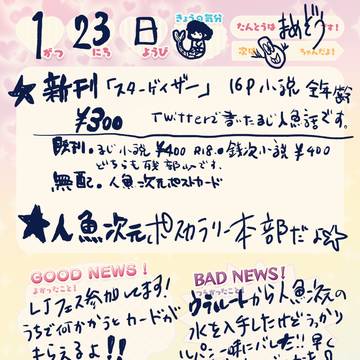 1がつ 23にち 日ようび きょうの気分 たんとうは まめぞう です！
次は ちゃんだよ！
★新刊「スターゲイザー」 16P 小説 全年齢
¥300 Twitterで書いたるじ人魚話です。
既刊。るじ小説 ¥400 R18.○銭次小説 ¥400
どちらも残部少です。
無配。人魚次元ポストカード
★人魚次元ポスカラリー本部だよ☆
GOOD NEWS！
よかったこと！
LJフェス参加してます！
うちで何かかうとカードが
もらえるよ！！
BAD NEWS！
ウラルートから人魚次元の
水を入手したけどうっかり
ルパンと一味にバレた!!早く